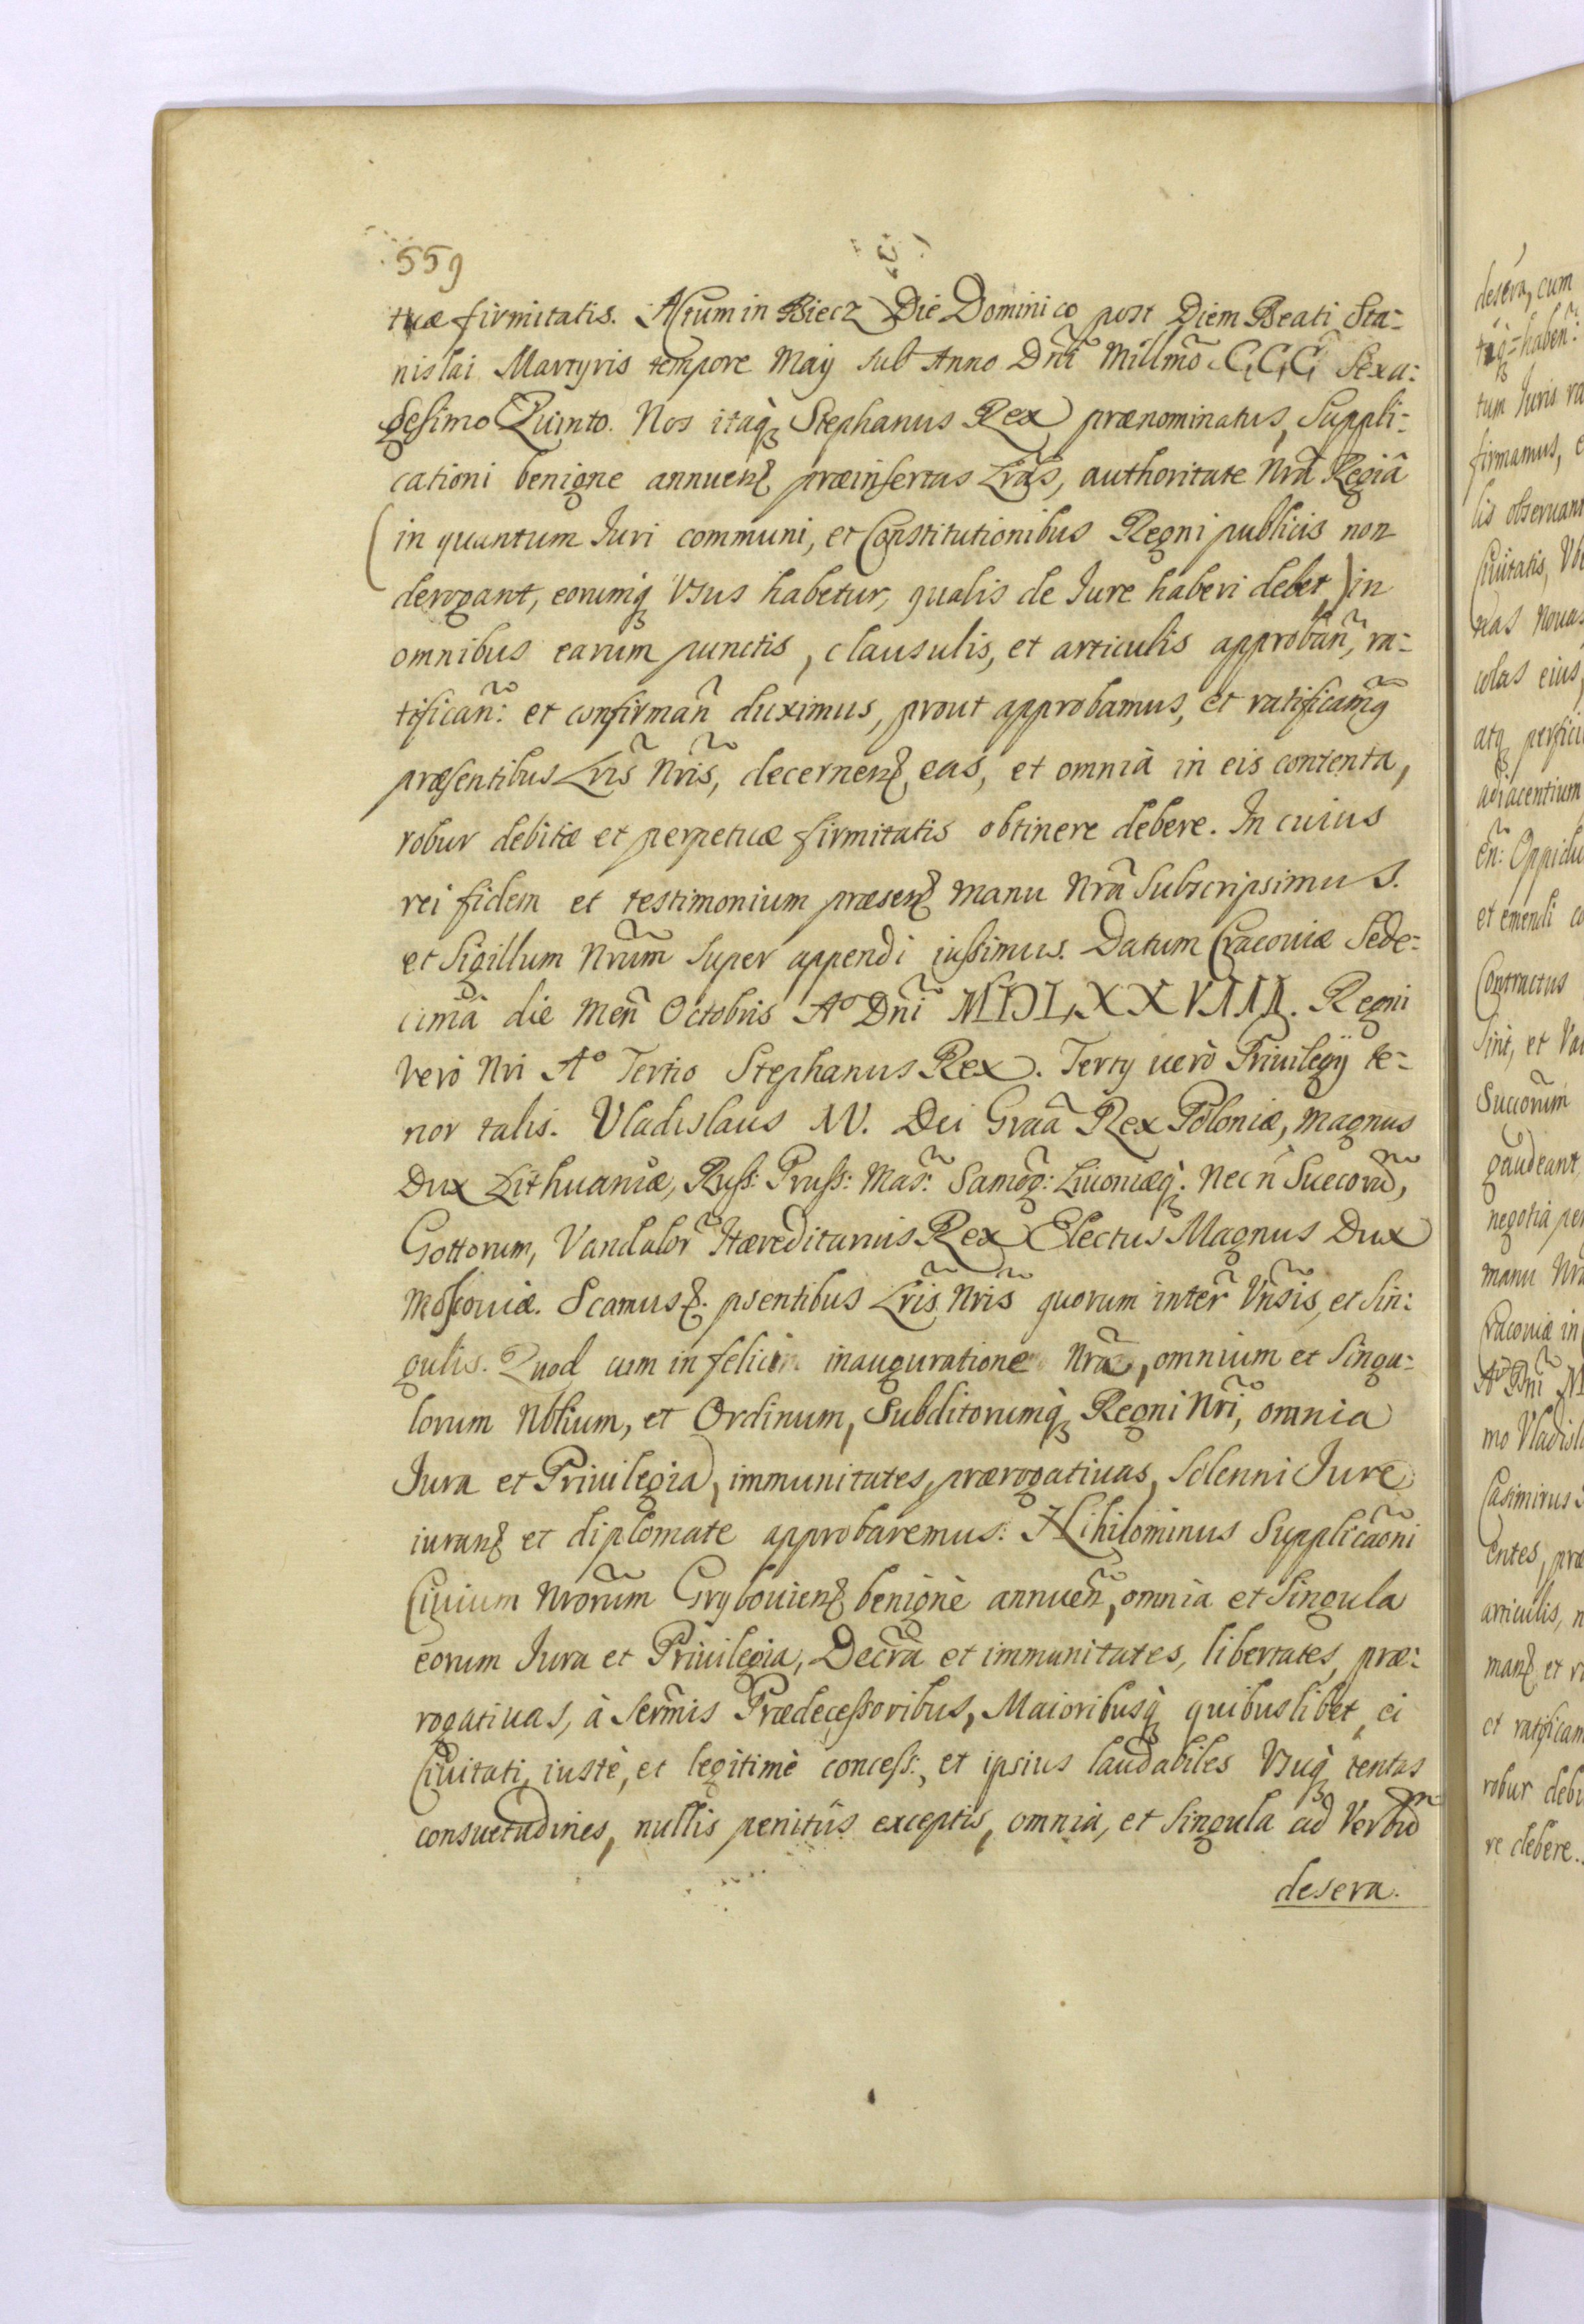 559
tuæ firmitatis. Actum in Biecz Die Dominico post Diem Beati Sta=
nislai Martyris tempore Maij sub Anno Dñi Millm̃o C,C,C, Sexa:
gesimo Quinto. Nos itaq̀ꝫ Stephanus Rex prænominatus, Suppli=
cationi benigne annuenꝭ præinsertas Lr̃as, authoritate Nr̃a Regiâ
(in quantum Iuri communi, et Constitutionibus Regni publicis non
derogant, eorumq̀ꝫ Vsus habetur, qualis de Iure haberi debet) in
omnibus earum punctis, clausulis, et articulis approbañ, ra=
tificañ: et confirmañ duximus, prout approbamus, et ratificamg̃
præsentibus Lr̃is Nr̃is, decernenꝭ, eas, et omnia in eis contenta,
robur debitæ et perpetuæ firmitatis obtinere debere. In cuius
rei fidem et testimonium præsenꝭ manu Nr̃a Subscripsimus.
et Sigillum Nr̃um super appendi iussimus. Datum Cracouiæ Sede=
cimâ die Meñ Octobris Aº Dñi MDLXXVIII. Regni
vero Nri Aº Tertio Stephanus Rex. Tertÿ uerò Priuilegÿ te=
nor talis. Vladislaus IV. Dei Graã Rex Poloniæ, Magnus
Dux Lithuaniæ, Russ: Pruss: Mas: Samog: Liuoniæq̀ꝫ. Nec ñ Suecorũ,
Gottorum, Vandalor̃ Hæreditarius Rex Electus Magnus Dux
Moscouiæ. Scamusꝭ. psentibus Lr̃is Nr̃is quorum inter̃ Vñsis, et Sin:
gulis. Quod cum in felici inauguratione Nr̃a, omnium et Singu=
lorum Nblium, et Ordinum, Subditorumq̀ꝫ Regni Nr̃i, omnia
Iura et Priuilegia, immunitates, prærogatiuas, Solenni Iure
iuranꝭ et diplomate approbaremus: Nihilominus Supplicaõni
Ciuium Nr̃orum Grybouienꝭ benignè annueñ, omnia et Singula
eorum Iura et Priuilegia, Decr̃a et immunitates, libertates, præ:
rogatiuas, à Serm̃is Prædecessoribus, Maioribusq̀ꝫ quibuslibet, ei
Ciuitati, iustè, et legitimè concess:, et ipsius laudabiles Vsuq̀ꝫ tentas
consuetudines, nullis penitùs exceptis, omnia, et Singula ad Verbũ
desera.
desera, cum
tum Iuris ra
firmamus, e
lis obseruant
Ciuitatis, Vb
nas nouas
colas eius,
atqꝫ perfici
adiacentium
eñ: Oppidu
et emendi co
Contractus
sint, et Va
Succorum
gaudeant,
negotia per
manu Nra
Cracouiæ in
Aº Dñi M
mo Vladisla
Casimirus
entes, præ
articulis, n
manꝭ et r
et ratificam
robur debi
re debere.